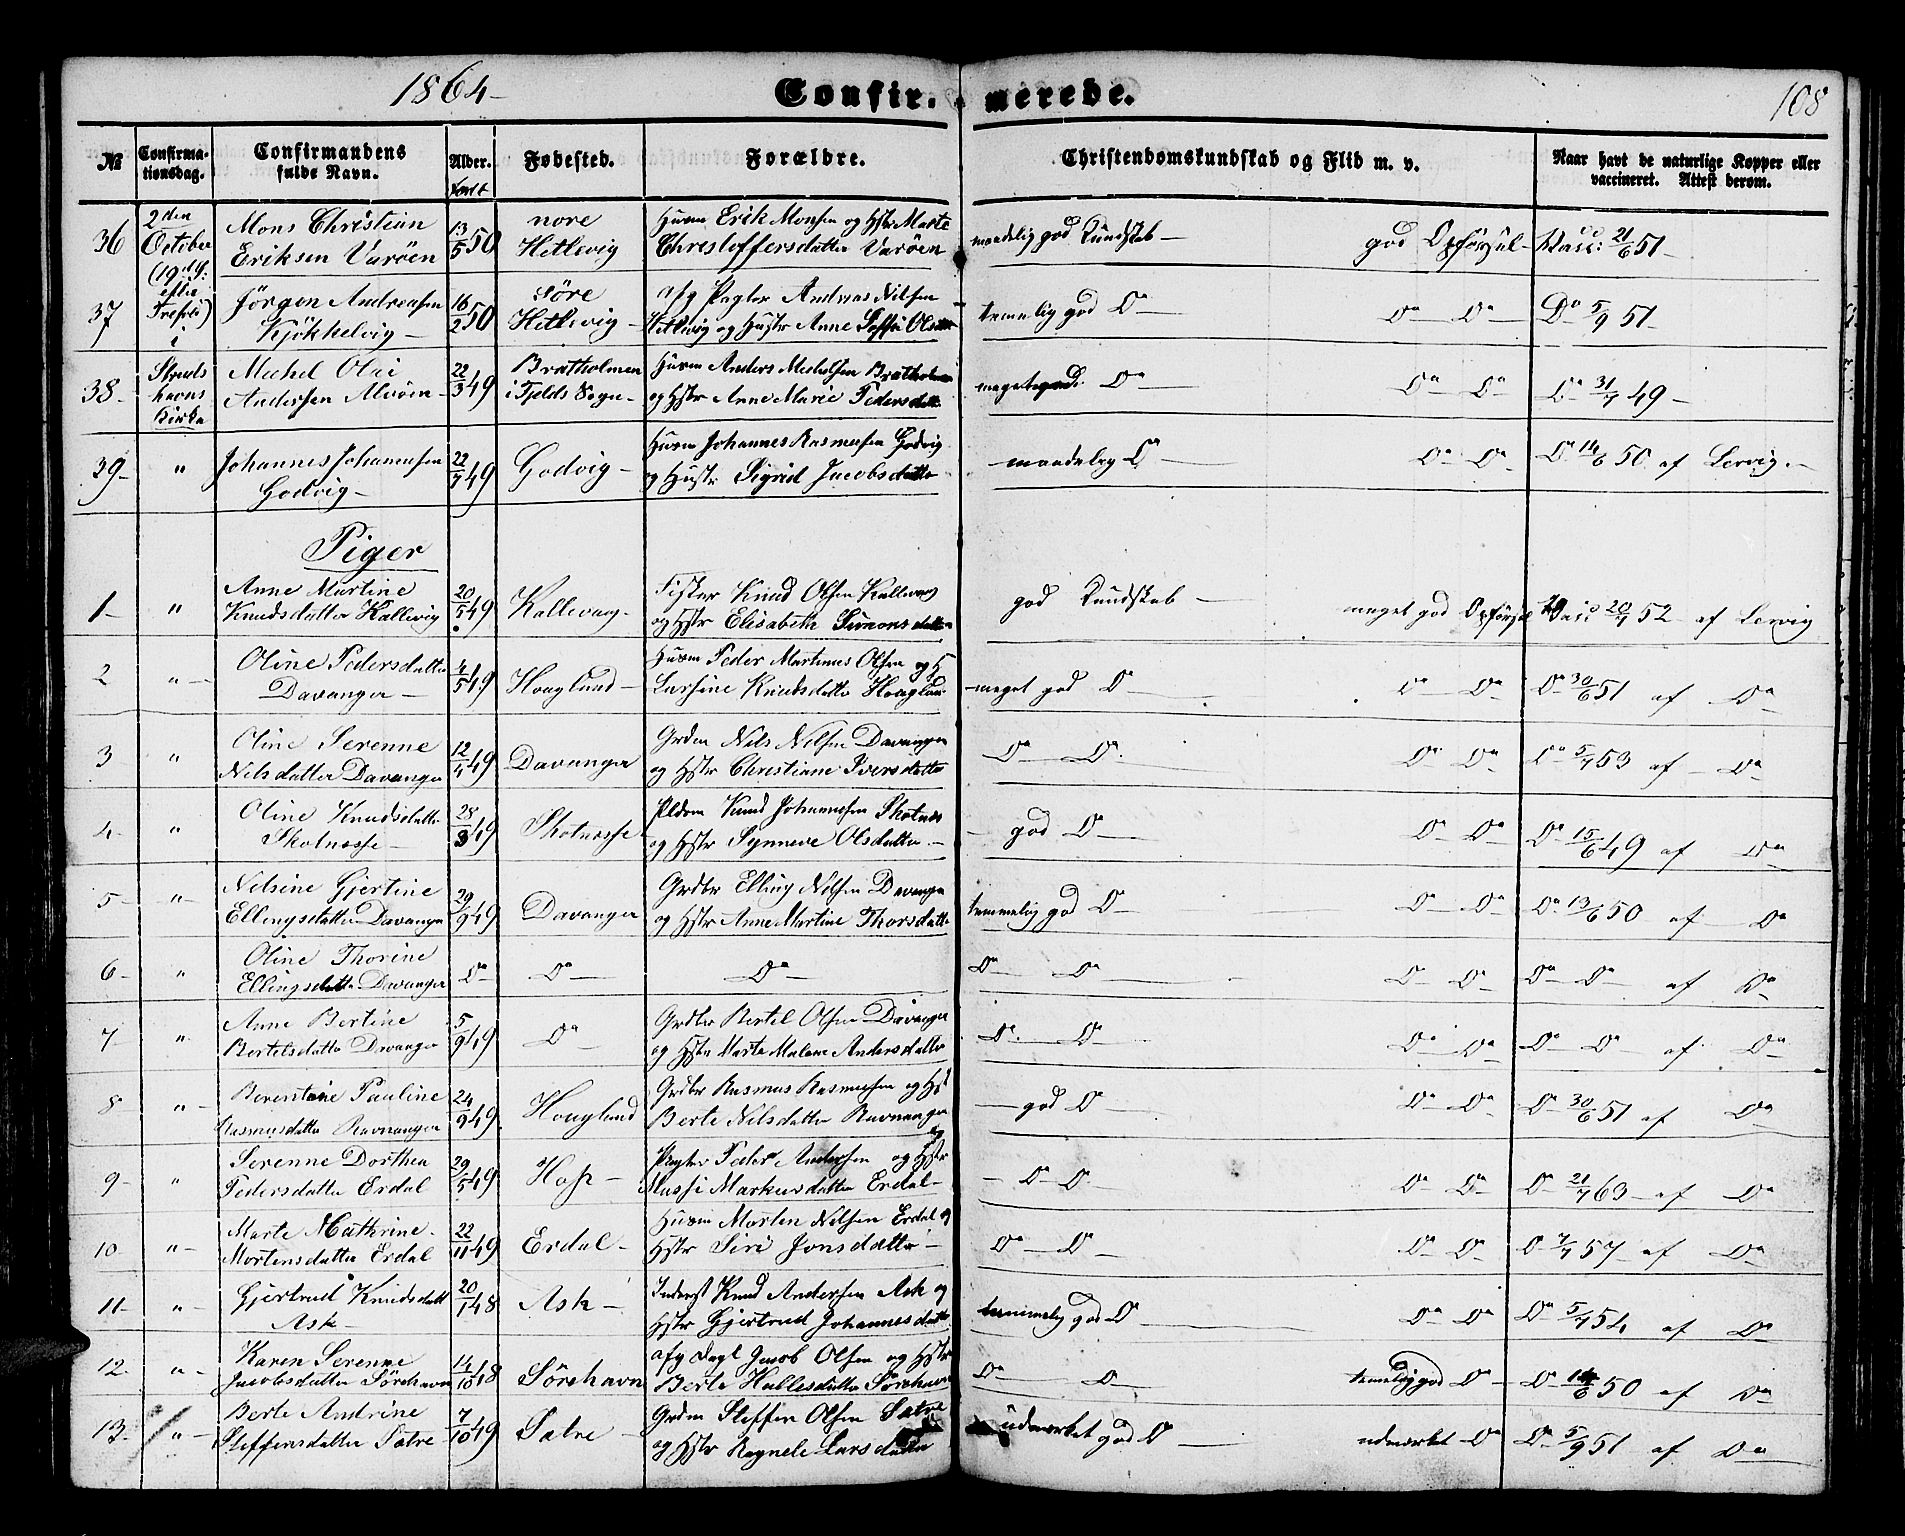 1864
Confir-merede.
108
№
Confirma-
tionsdag.
Confirmandens
fulde Navn.
Alder.
født
Fødested.
Forældre.
Christendomskundskab og Flid m. v.
Naar havt de naturlige Kopper eller
vaccineret. Attest derom.
2den
October
(19 S.
efter
Trefold)
i
Struds
havns
Kirke
36 Mons Christian
Eriksen Varøen 13/5 50 nore
Hetlevig Husm Erik Monsen og Hstr Marte
Christoffersdatter Varøen maadelig god Kundskab god Opførsel Vacc: 21/6 51
37 Jørgen Andreasen
Kjøkkelvig 16/2 50 søre
Hetlevig Andreas Nilsen
Hetlevig og Hustr Anne Olsdatter temmelig god Do Do Do Do 5/9 51
38 Michel Olai
Andersen Alvøen 22/3 49 Bratholmen
i Fjelds Sogn Husm Anders Michelsen Bratholmen
og Hstr Anne Marie Pedersdatt meget god Do Do Do Do 31/7 49
39 " Johannes Johannesen
Godvig 22/7 49 Godvig Husm Johannes Rasmusen Godvig
og Hustr Sigrid Jacobsdatter maadelig Do Do Do Do 50 af Lervig.
Piger
1 " Anne Martine
Knudsdatter Kallevig 20/5 49 Kallevaag Fisker Knud Olsen Kallevaag
og Hstr Elisabeth Simonsdatter god Kundskab meget god Opførsel Vacc 20/7 52 af Lervig
2 " Oline Pedersdatter
Davanger 4/5 49 Hoaglund Husm Peder Martinus Olsen og H
Larsine Knudsdatter Hoaglund meget god Do Do Do Do 30/6 51 af Do
3 " Oline Serenne
Nilsdatter Davanger 12/4 49 Davanger Grdm Nils Nilsen Davanger
og Hstr Christiane Iversdatter Do Do Do Do Do 5/7 53 af Do
4 " Oline Knudsdatter
Skotnesse 28/3 49 Skotnesse Knud Johannesen Skotnes
og Hstr Synneve Olsdatter god Do Do Do Do 15/6 49 af Do
5 " Nilsine Gjertine
Ellingsdatter Davanger 29/9 49 Davanger Grdbr Elling Nilsen Davanger
og Hstr Anne Martine Thorsdatter temmelig god Do Do Do Do 13/6 50 af Do
6 " Oline Thorine
Ellingsdatter Davanger Do Do Do Do Do Do Do Do Do af Do
7 " Anne Bertine
Bertelsdatter Davanger 5/9 49 Do Grdbr Bertel Olsen Davanger
og Hstr Marte Malene Andersdatter Do Do Do Do Do Do af Do
8 " Berentine Pauline
Rasmusdatter Ravnanger 24/9 49 Hoaglund Grdbr Rasmus Rasmusen og Hst
Berte Nilsdatter Ravnanger god Do Do Do Do 30/6 51 af Do
9 " Serenne Dorthea
Pedersdatter Erdal 29/5 49 Hop Peder Andersen og Hstr
Markusdatter Erdal Do Do Do Do Do 21/7 63 af Do
10 " Marte Mathrine
Mortensdatter Erdal 22/11 49 Erdal Husm Morten Nilsen Erdal og
Hstr Siri Jonsdatter Do Do Do Do Do 7/7 57 af Do
11 " Gjertrud Knudsdatt
Ask 20/1 48 Ask Inderst Knud Andersen Ask og
Hstr Gjertrud Johannesdatter temmelig god Do Do Do Do 5/7 54 af Do
12. " Karen Serenne
Jacobsdatter Sørehavn 14/10 48 Sørehavn Jacob Olsen og Hstr
Berte Hallesdatter Sørehavn Do Do temmelig god Do Do 50 af Do
13. " Berte Andrine
Steffensdatter Sætre 7/10 49 Sætre Grdm Steffen Olsen Sætre
og Hstr Ragnele Larsdatter udmærket god Do udmærket Do Do 5/9 51 af Do